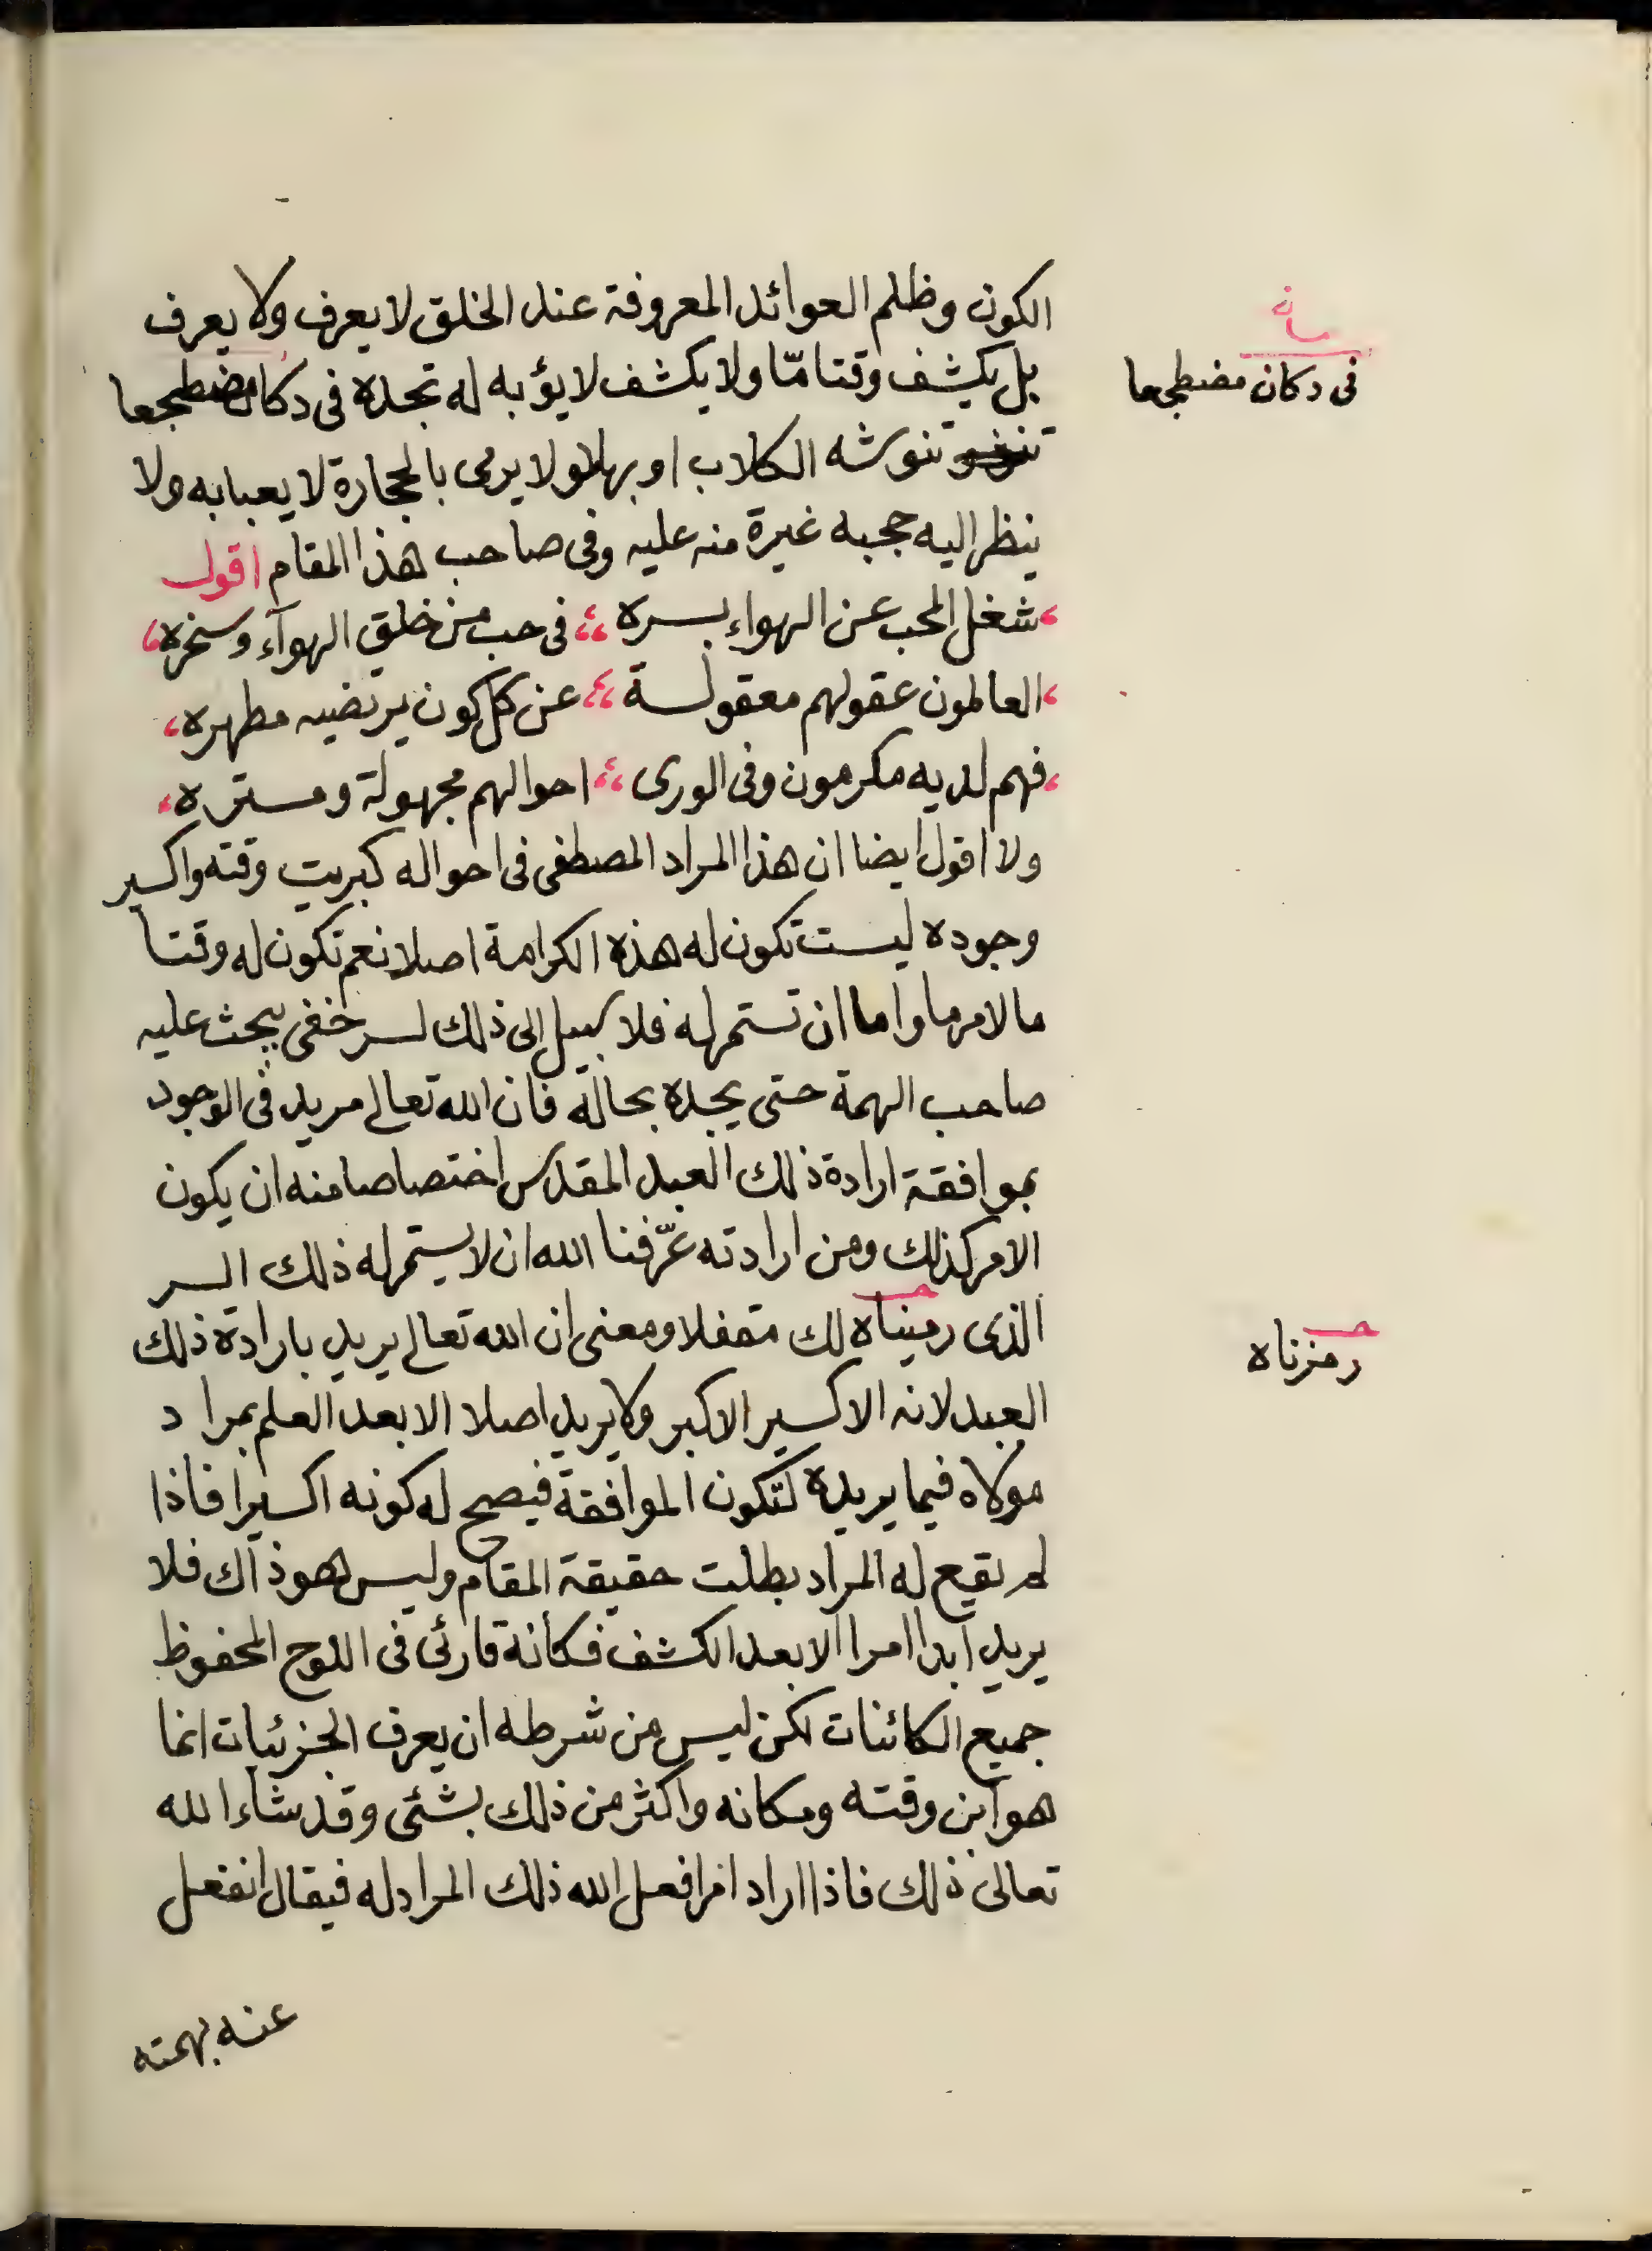 الكون وظلم العوائد المعروفة عند الخلق لا يعرف ولا يعرف
بل يكشف وقتا مّا ولا يكشف لا يؤبه له تجده فى دكان مضطجعا
تنوشه الكلاب او بهلولا يرمى بالحجارة لا يعبا به ولا
ينظر اليه حجبه غيرة منه عليه وفى صاحب هذا المقام اقول
شغل المحب عن الهواء بسره ،، فى حب من خلق الهوآء وسخره،
،العالمون عقولهم معقولة ،، عن كل كون يرتضيه مطهره،
،فهم لديه مكرمون وفى الورى ،، احوالهم مجهولة ومستره،
ولا اقول ايضا ان هذا المراد المصطفى فى احواله كبريت وقته واكسير
وجوده ليست تكون له هذه الكرامة اصلا نعم تكون له وقتا
ما لامر ما واما ان تستمر له فلا سبيل إلى ذلك لسر خفى يبحث عليه
صاحب الهمة حتى يجده بحاله فان الله تعالى مريد فى الوجود
بموافقة ارادة ذلك العبد المقدس اختصاصا منه ان يكون
الامر كذلك ومن ارادته عرّفنا الله ان لا يستمر له ذلك السر
الذى رميناه لك مقفلا ومعنى ان الله تعالى يريد بارادة ذلك
العبد لانه الاكسير الاكبر ولا يريد اصلا الا بعد العلم بمراد
مولاه فيما يريده لتكون الموافقة فيصح له كونه اكسيرا فاذا
لم يقع له المراد بطلت حقيقة المقام وليس هو ذاك فلا
يريد ابدا امرا الا بعد الكشف فكانه قارئ فى اللوح المحفوظ
جميع الكائنات لكن ليس من شرطه ان يعرف الجزئيات انما
هو ابن وقته ومكانه واكثر من ذلك بشئ وقد شاء الله
تعالى ذلك فاذا اراد امرا فعل الله ذلك المراد له فيقال انفعل
عنه بهمته
فى دكان مضطجعا
رمزناه